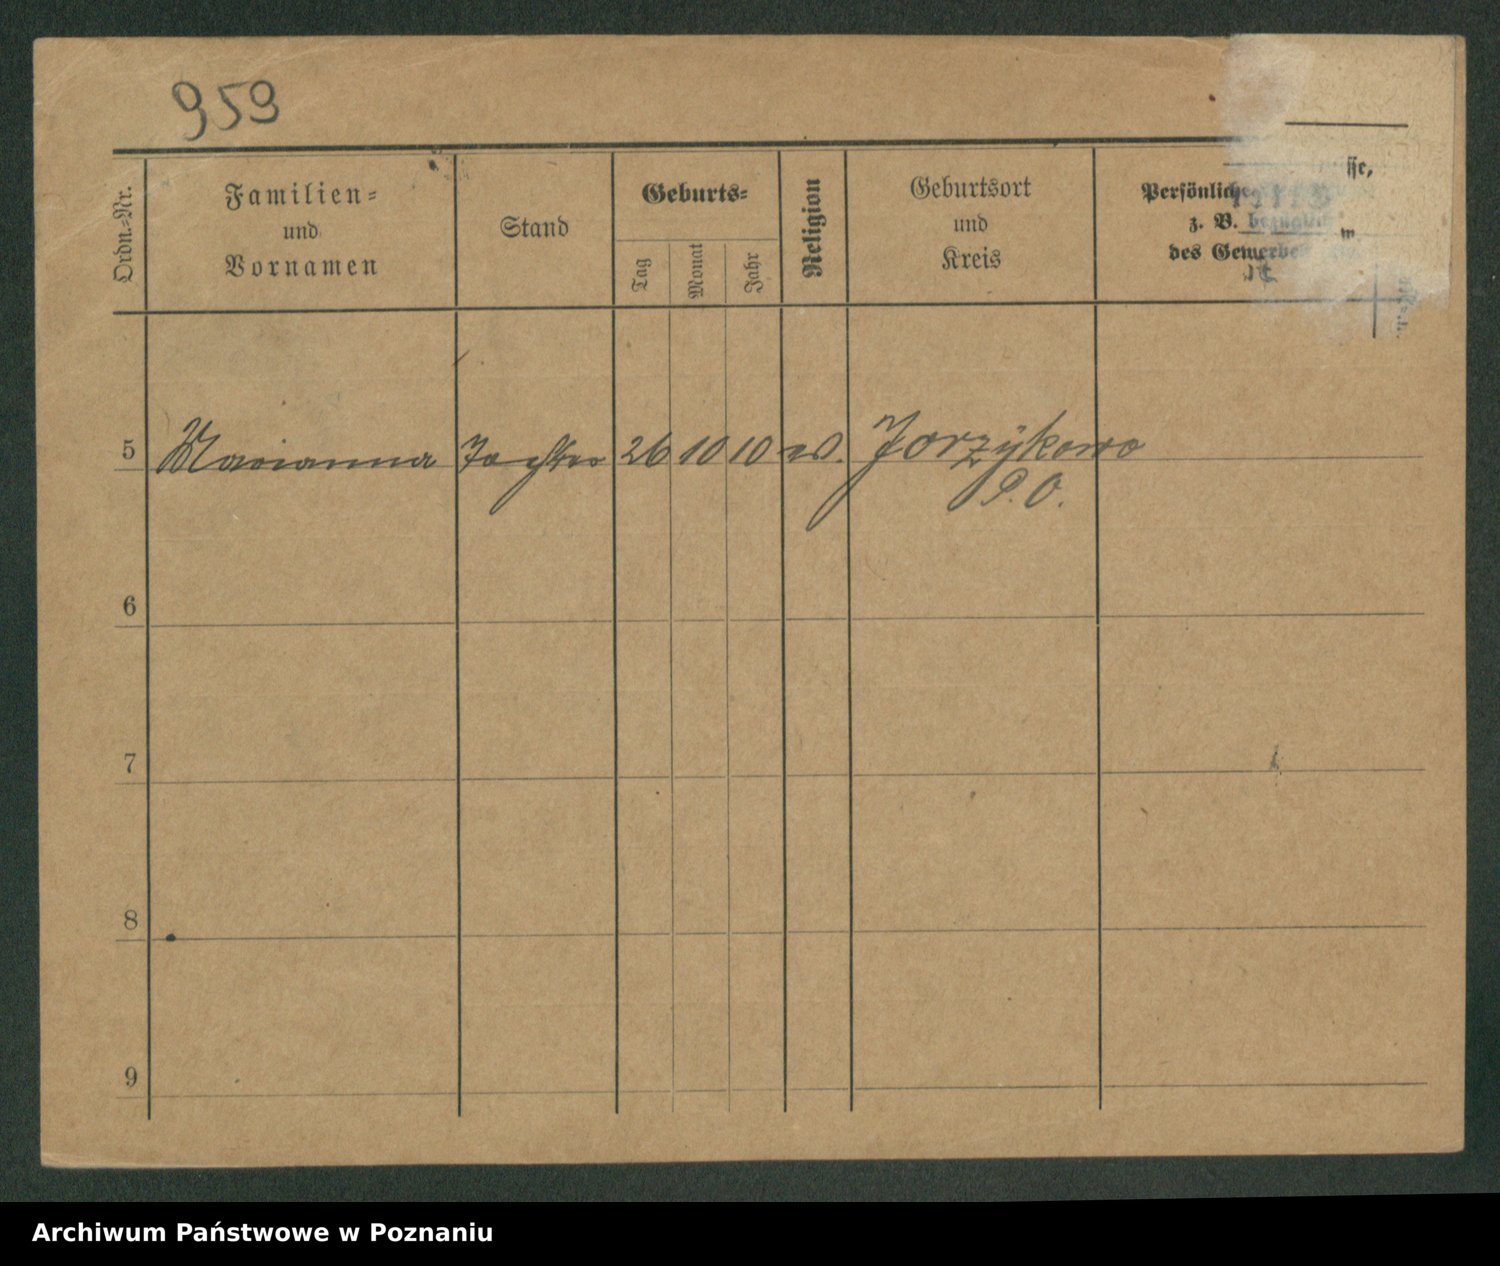 959
Ordn.-Nr.
Familien-
und
Vornamen
Stand
Geburts-
Tag
Monat
Jahr
Religion
Geburtsort
und
Kreis
Persönliche
z. B. bezüglich
des Gewerbe
sse,
5 Marianna Tochter 26 10 10 Jerzykowo
P. O.
6
7
8
9
Archiwum Państwowe w Poznaniu